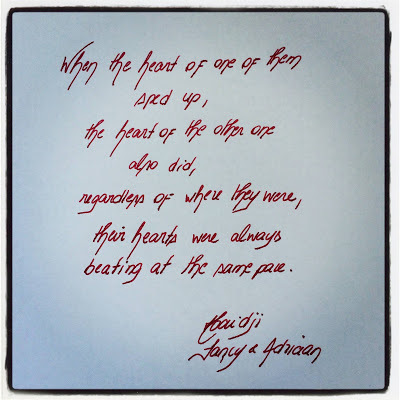 When the heart of one of them
sped up,
the heart of the other one
also did,
regardless of where they were,
their hearts were always
beating at the same pace.
Haidji
Fancy & Adriaan